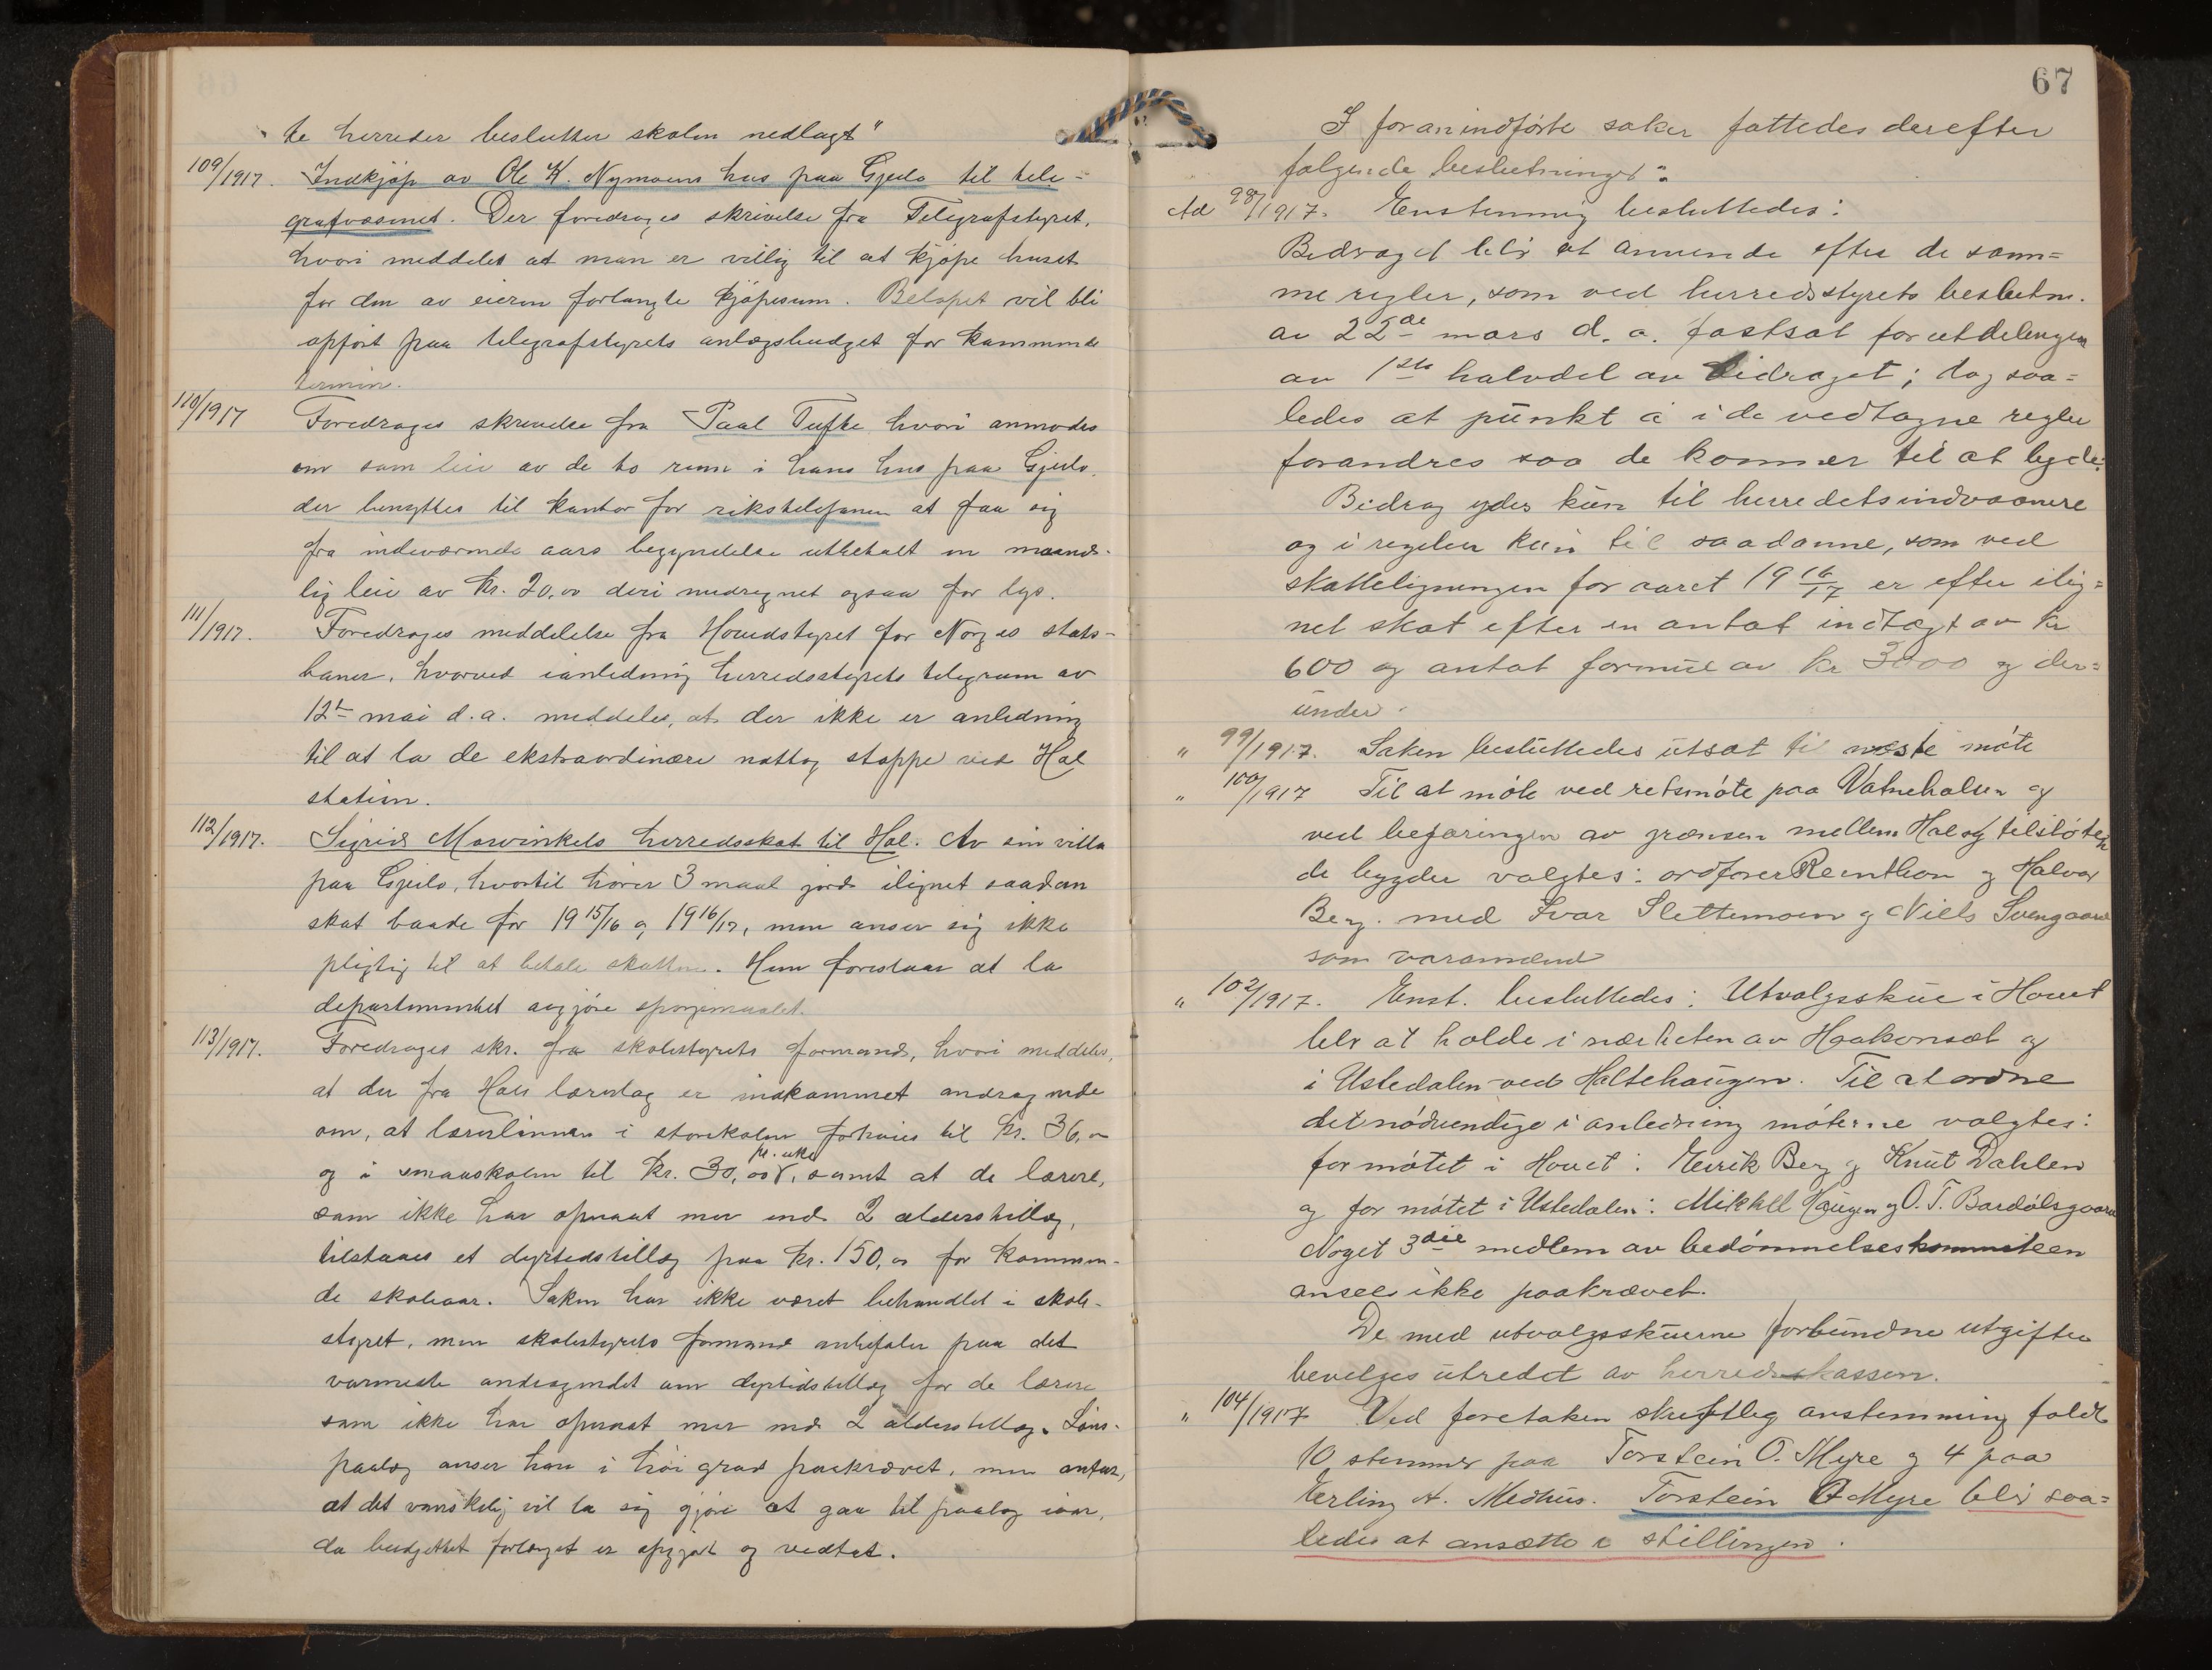 te herreder beslutter skolen nedlagt"
109/1917. Indkjøp av Ole K. Nymoens hus paa Gjeilo til tele-
grafvæsenet. Der foredrages skrivelse fra Telegrafstyret,
hvori meddeles at man er villig til at kjøpe huset
for den av eieren forlangte kjøpesum. Beløpet vil bli
opført paa telegrafstyrets anlægsbudget for kommende
termin.
110/1917 Foredrages skrivelse fra Paal Tufte hvori anmodes
om som leie av de to rum i hans hus paa Gjeilo,
der benyttes til kontor for rikstelefonen at faa sig
fra indeværende aars begyndelse utbetalt en maaned-
lig leie av kr. 20,00 deri medregnet ogsaa for lys.
111/1917. Foredrages meddelelse fra Hovedstyret for Norges stats-
baner, hvorved i anledning herredsstyrets telegram av
12te mai d.a. meddeles, at der ikke er anledning
til at la de ekstraordinære nattog stoppe ved Hol
station.
112/1917. Sigrid Mowinkels herredsskat til Hol. Av sin villa
paa Gjeilo, hvortil hører 3 maal jord ilignet saadan
skat baade for 1915/16 og 1916/17, men anser sig ikke
pligtig til at betale skatten. Hun foreslaar at la
departementet avgjøre spørsmaalet.
113/1917. Foredrages skr. fra skolestyrets formand, hvori meddeles,
at der fra Hols lærerlag er indkommet andragende
om, at lærerlønnen i storskolen forhøies til kr. 36,00
pr. uke
og i smaaskolen til kr. 30,00, samt at de lærere,
som ikke har opnaat mer end 2 alderstillæg,
tilstaaes et dyrtidstillæg paa kr. 150,00 for kommen-
de skoleaar. Saken har ikke været behandlet i skole-
styret, men skolestyrets formand anbefaler paa det
varmeste andragendet om dyrtidstillæg for de lærere
som ikke har opnaat mer end 2 alderstillæg. Løns-
paalæg anser han i høi grad paakrævet, men antar,
at det vanskelig vil la sig gjøre at gaa til paalæg iaar,
da budgettet forlængst er opgjort og vedtat.
67
I foranindførte saker fattedes derefter
følgende beslutninger:
Ad 98/1917. Enstemmig besluttedes:
Bidraget blir at anvende efter de sam=
me regler, som ved herredsstyrets beslutn.
av 22de mars d. a. fastsat for utdelingen
av 1ste halvdel av bidraget; dog saa=
ledes at punkt a i de vedtagne regler
forandres saa de kommer til at lyde:
Bidrag ydes kun til herredets indvaanere
og i regelen kun til saadanne, som ved
skatteligningen for aaret 1916/17 er efter ilig=
net skat efter en antat indtægt av kr
600 og antat formue av kr 3000 og der=
under.
" 99/1917. Saken besluttedes utsat til næste møte
" 100/1917 Til at møte ved retsmøte paa Vatnehalsen og
ved befaringen av grænsen mellem Hol og tilstøten
de bygder valgtes: ordfører Reinthon og Halvor
Berg. med Ivar Slettemoen og Niels Svengaard
som varamænd
" 102/1917. Enst. besluttedes: Utvalgsskue i Hovet
blir at holde i nærheten av Haakonsæt og
i Ustedalen ved Haltehaugen. Til at ordne
det nødvendige i anledning møterne valgtes:
for møtet i Hovet: Eirik Berg og Knut Dahlen
og for møtet i Ustedalen: Mikkel Haugen og O. T. Bardølsgaard
Noget 3die medlem av bedømmelseskommiteen
ansees ikke paakrævet.
De med utvalgsskuerne forbundne utgifter
bevilges utredet av herredskassen.
" 104/1917 Ved foretaken skriftlig avstemming faldt
10 stemmer paa Torstein O. Myre og 4 paa
Erling A. Medhus. Torstein O Myre blir saa=
ledes at ansætte i stillingen.